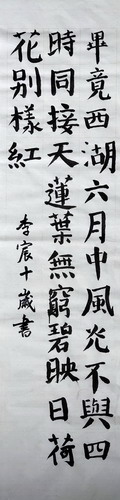 畢竟西湖六月中風光不與四
時同接天蓮葉無窮碧映日荷
花别樣紅
李宸十歲書